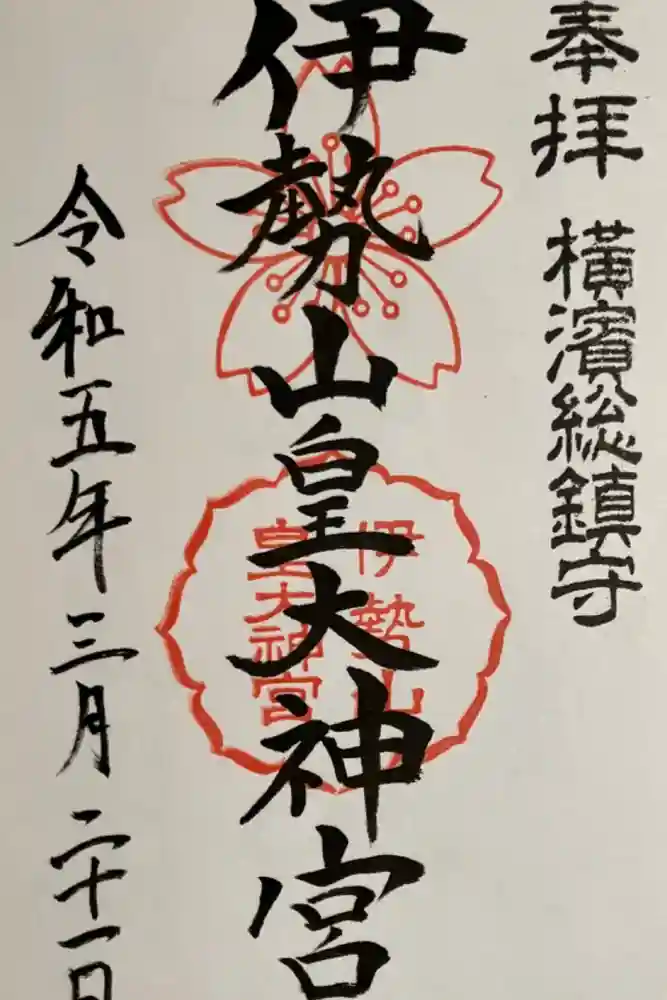 奉拝
横濱総鎮守
伊勢山皇大神宮
伊勢山
皇大神宮
令和五年三月二十一日